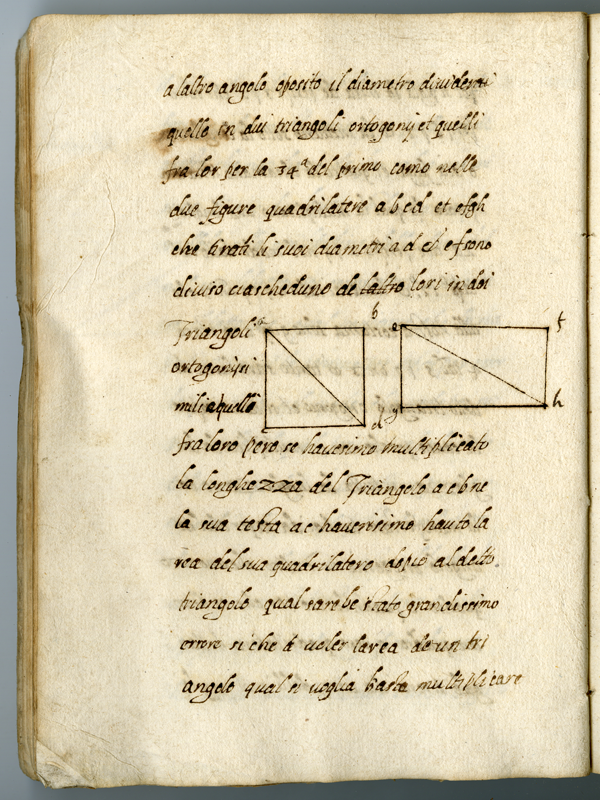 a laltro angolo oposito il diametro dividerai
quello in dui triangoli ortogonij et quelli
fra lor per la 34ª del primo como nelle
due figure quadrilatere a b c d et efgh
che tirati li suoi diametri a d el e f sono
diviso ciascheduno de laltro lori in doi
b
Triangoli a e f
ortogonij si
mili a quelli d g h
fra loro pero se havesimo multiplicato
la longhezza del Triangolo a c b ne
la sua testa a c haveressimo hauto la
rea del sua quadrilatero dopio al detto
triangolo qual sarebe stato grandissimo
errore si che a voler larea de un tri
angolo qual si voglia basta multiplicare